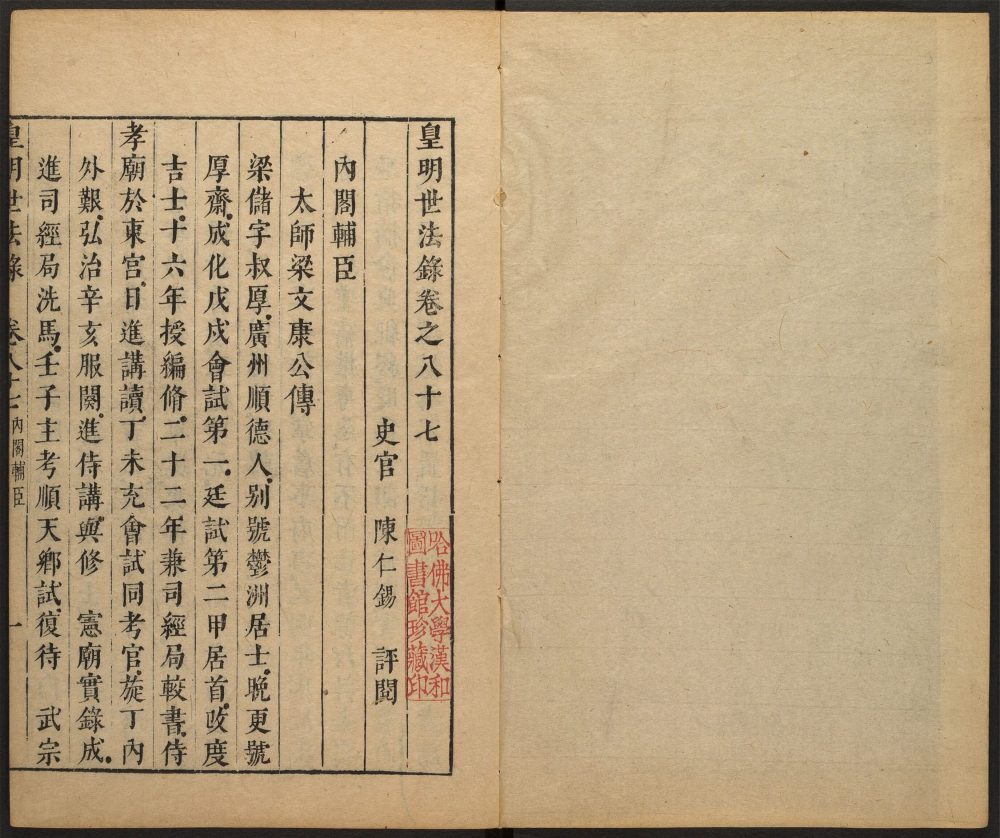 皇明世法錄卷之八十七
史官 陳仁錫 評閱
內閣輔臣
太師梁文康公傳
梁儲字叔厚廣州順德人別號鬱洲居士晚更號
厚齋成化戊戌會試第一廷試第二甲居首改庶
吉士十六年授編脩二十二年兼司經局較書侍
孝廟於東宮日進講讀丁未充會試同考官旋丁內
外艱弘治辛亥服闋進侍講與修 憲廟實錄成
進司經局洗馬壬子主考順天鄉試復侍 武宗
皇明世法錄 卷八十七 內閣輔臣 一
哈佛大學漢和
圖書館珍藏印